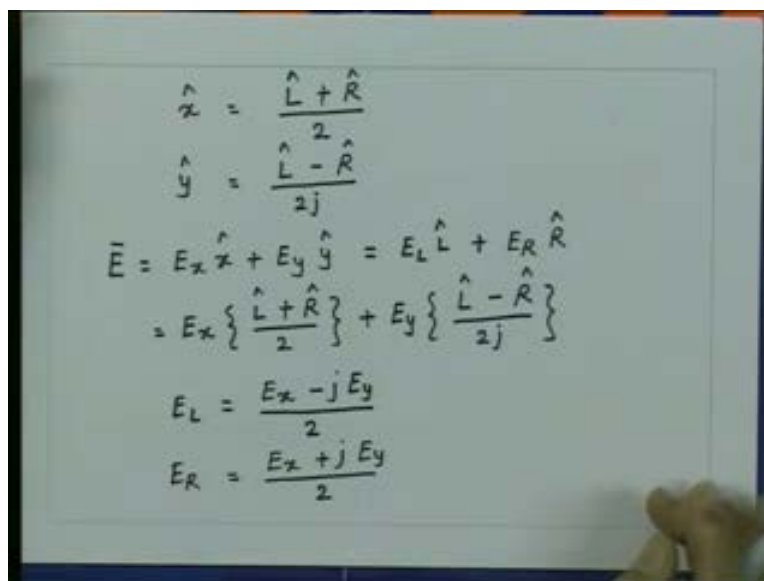 x̂ = (L̂ + R̂)/2
ŷ = (L̂ - R̂)/2j
Ē = Eₓ x̂ + E_y ŷ = E_L L̂ + E_R R̂
= Eₓ { (L̂ + R̂)/2 } + E_y { (L̂ - R̂)/2j }
E_L = (Eₓ - j E_y)/2
E_R = (Eₓ + j E_y)/2